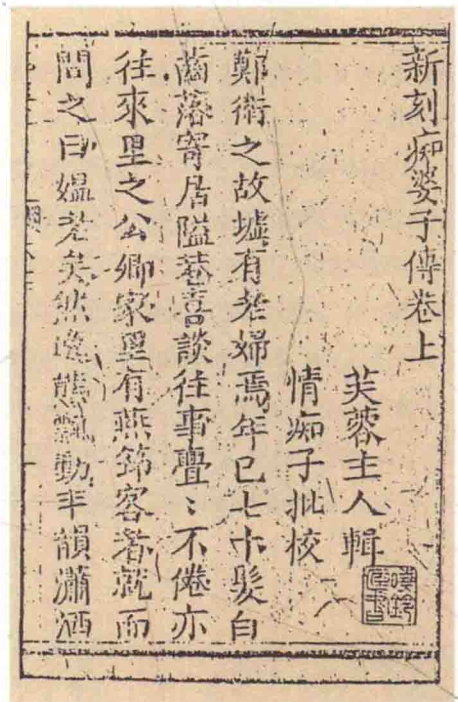 新刻痴婆子傳卷上
芙蓉主人輯
情痴子批校
鄭衛之故墟有老婦焉年已七十髮白
齒落寄居隘巷喜談往事亹〻不倦亦
往來里之公卿家里有燕筇客者就而
問之曰媪老矣然逸態飄動丰韻瀟洒